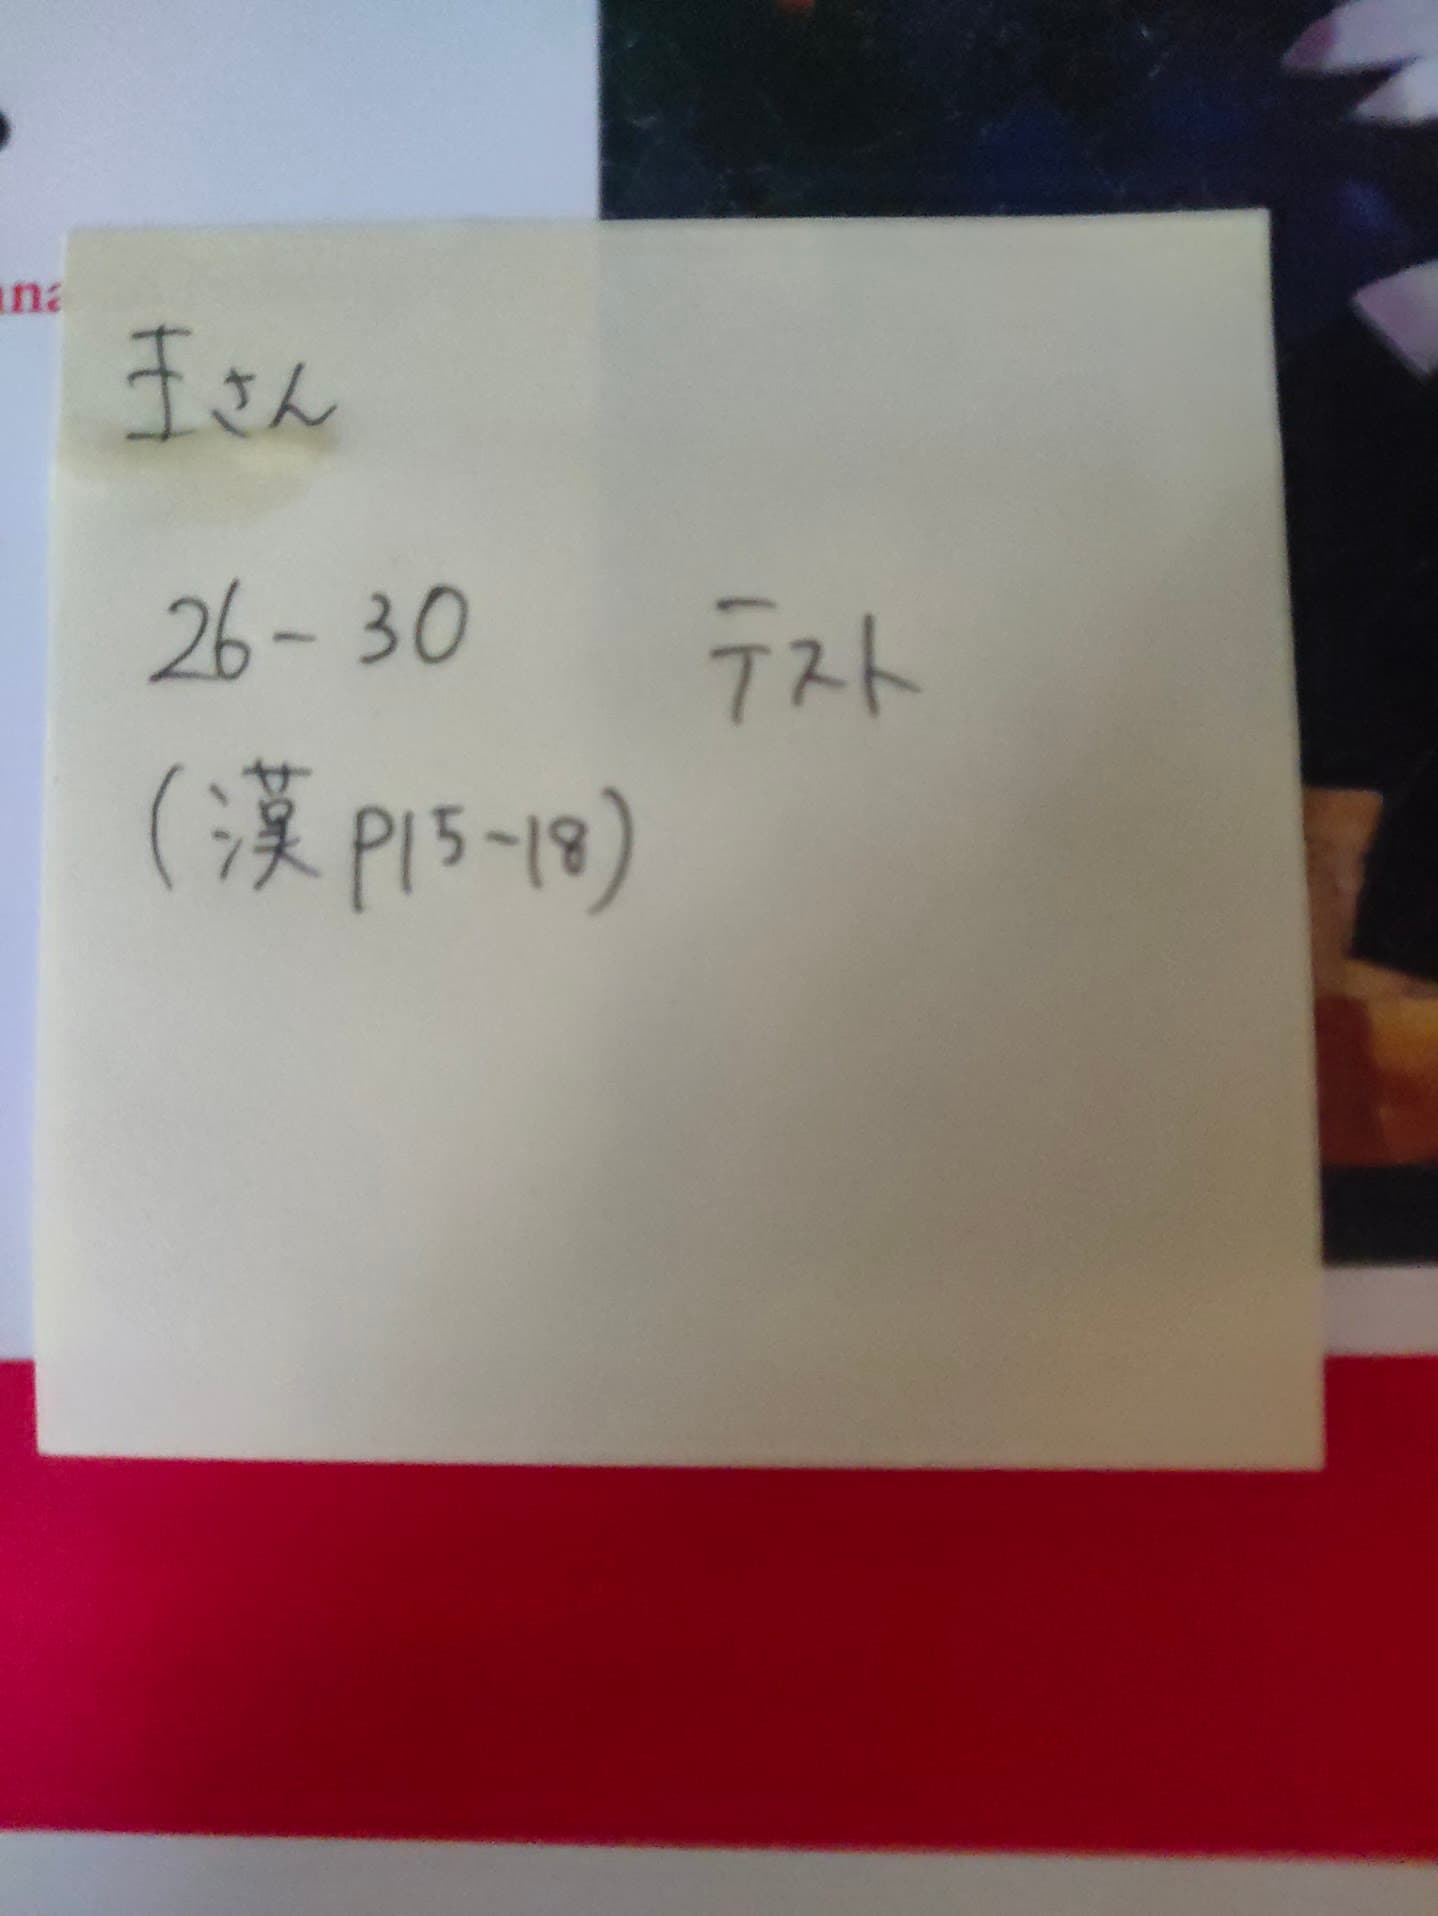 una
王さん
26-30 テスト
(漢 P15-18)